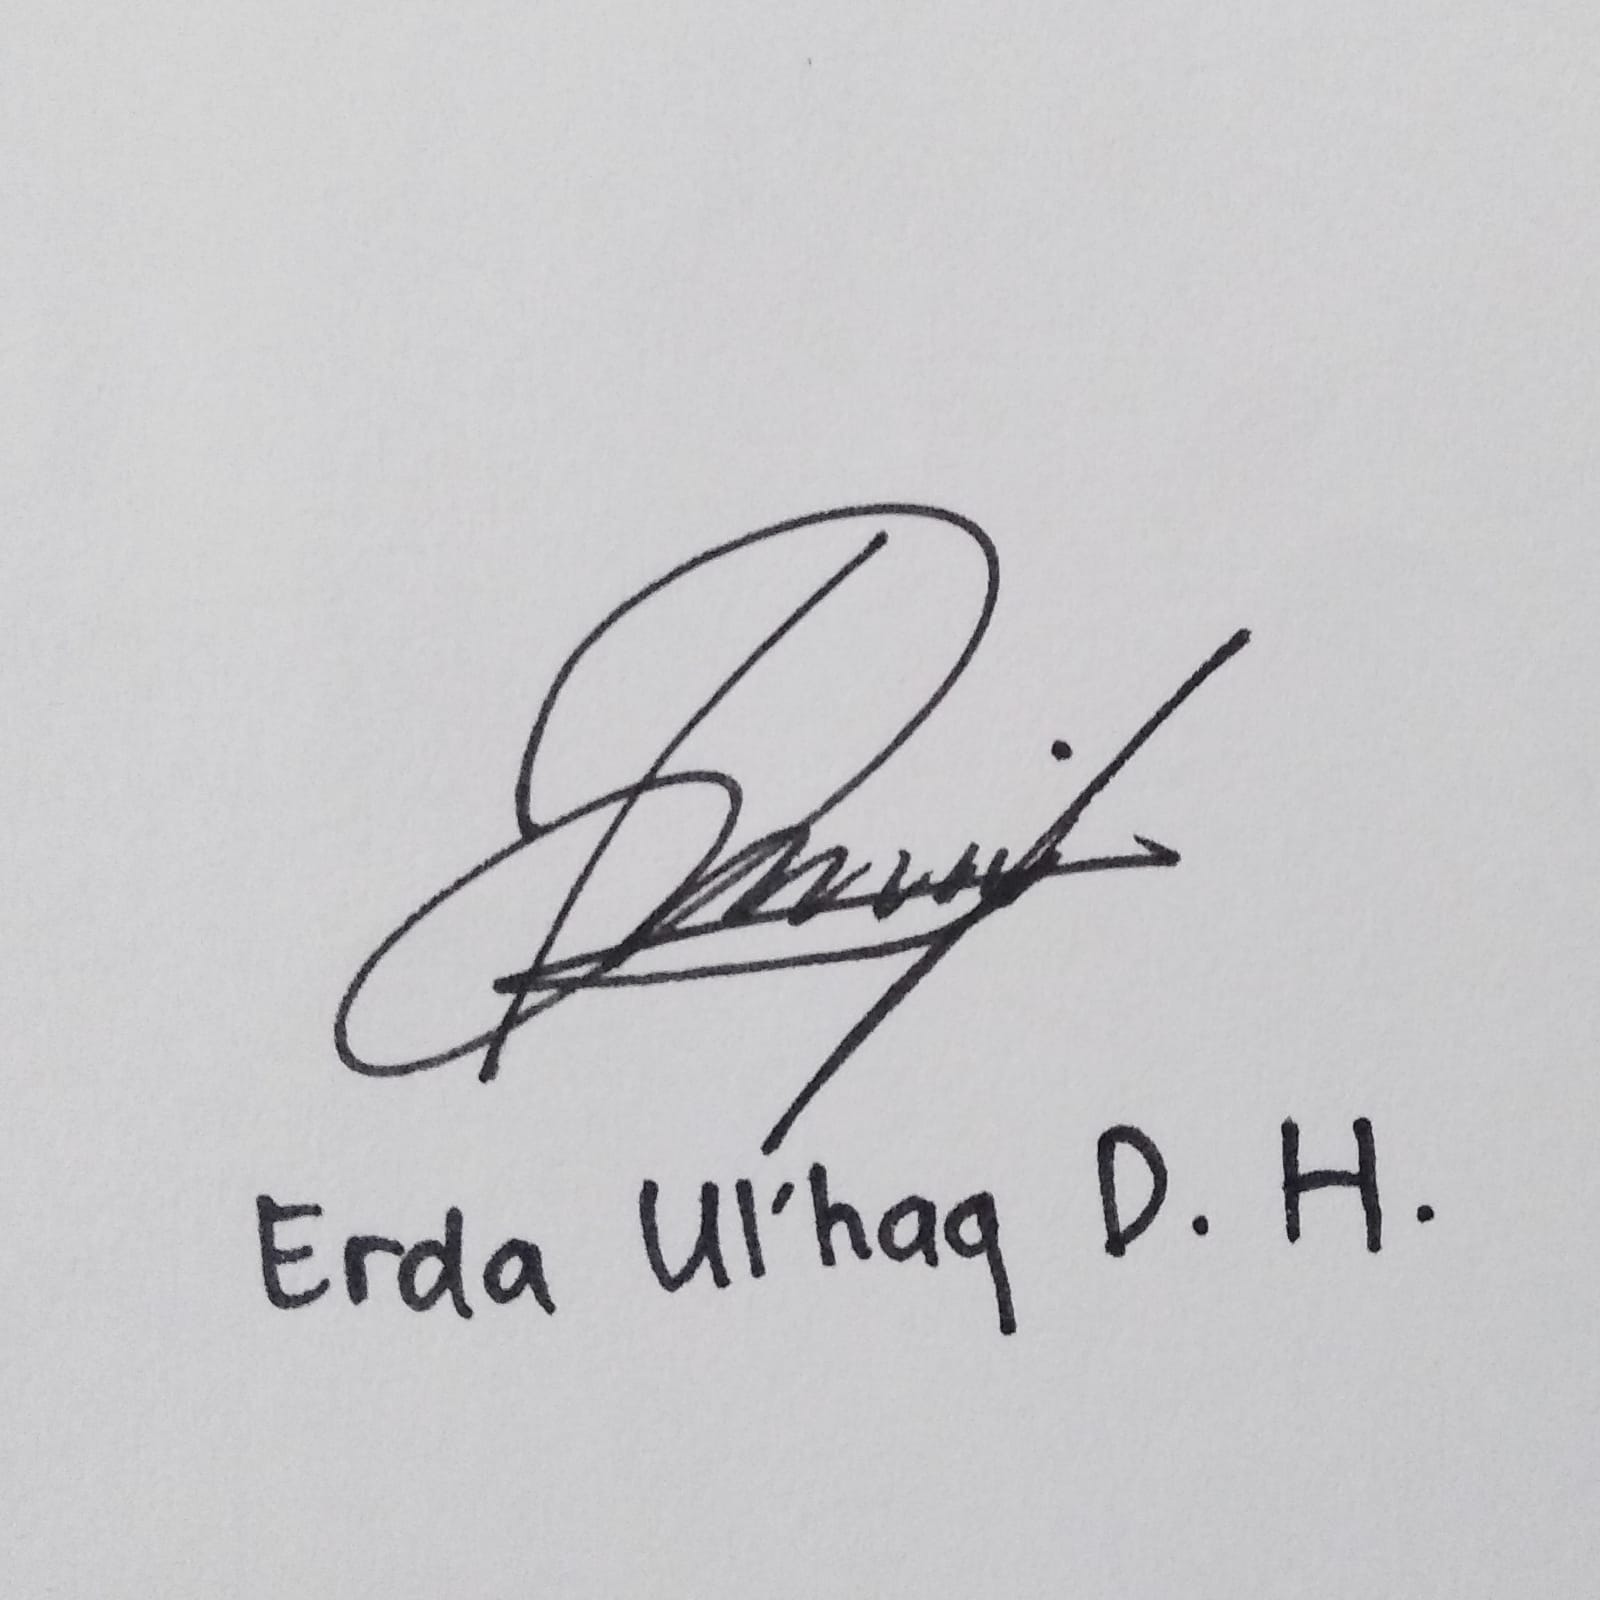 Erda Ul'haq D. H.